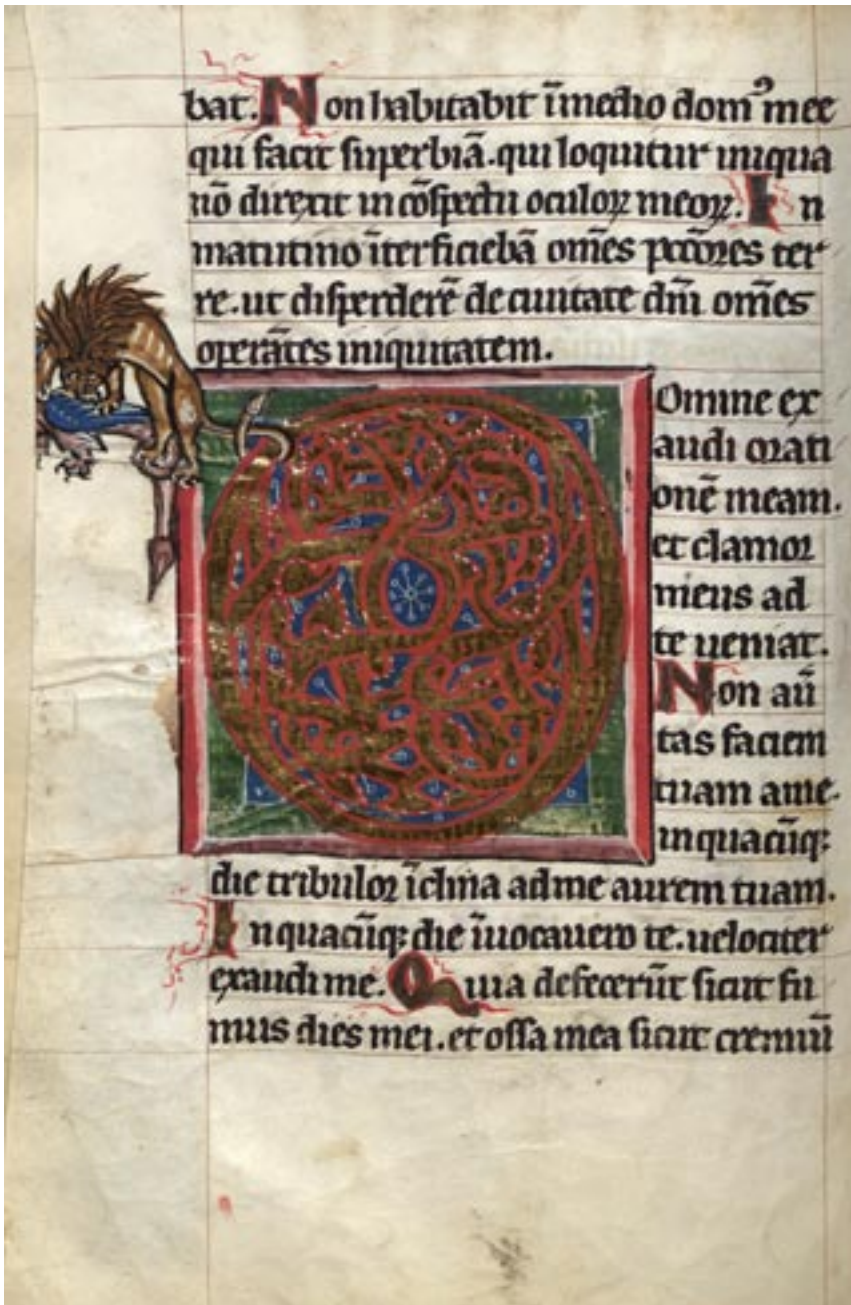 bat. Non habitabit ī medio domꝰ mee
qui facit superbiā. qui loquitur iniqua
nō direxit in cōspectu oculoꝝ meoꝝ. In
matutino īterficiebā om̄es pctōres ter
re. ut disperderē de ciuitate dn̄i om̄es
operātes iniquitatem.
Domine ex
audi orati
onē meam.
et clamor
meus ad
te ueniat.
Non aū
tas faciem
tuam a me.
in quacūqꝫ
die tribuloꝛ īclina ad me aurem tuam.
In quacūqꝫ die īuocauero te. uelociter
exaudi me. Quia defecerūt sicut fu
mus dies mei. et ossa mea sicut cremiū